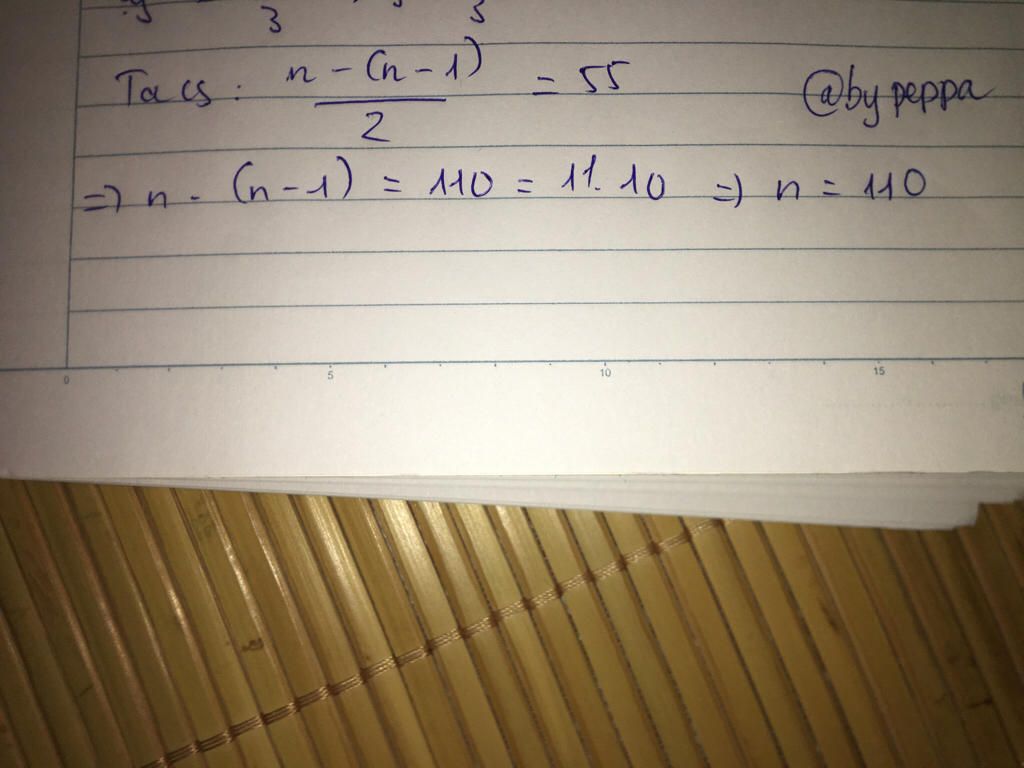 3 3
Ta cs: n - (n - 1) / 2 = 55 @by peppa
=> n - (n - 1) = 110 = 11. 10 => n = 110
0 5 10 15